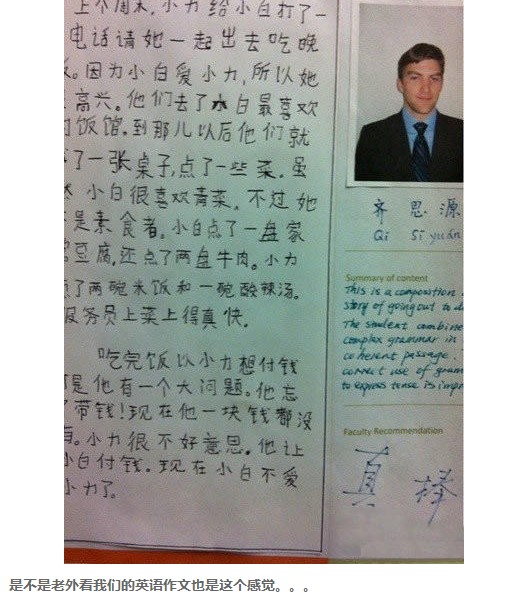 上个周末,小力给小白打了一
电话请她一起出去吃晚
因为小白爱小力,所以她
高兴。他们去了小白最喜欢
饭馆。到那儿以后他们就
了一张桌子,点了一些菜。虽
小白很喜欢青菜,不过她
是素食者。小白点了一盘家
豆腐,还点了两盘牛肉。小力
了两碗米饭和一碗酸辣汤。
服务员上菜上得真快。
吃完饭以小力想付钱
是他有一个大问题。他忘
带钱!现在他一块钱都没
。小力很不好意思。他让
小白付钱。现在小白不爱
小力了。
齐思源
Qi Sī yuán
Summary of content
This is a composition
story of going out to di
The student combine
complex grammar in
coherent passage.
correct use of gram
to express tense is impr
Faculty Recommendation
真棒
是不是老外看我们的英语作文也是这个感觉。。。